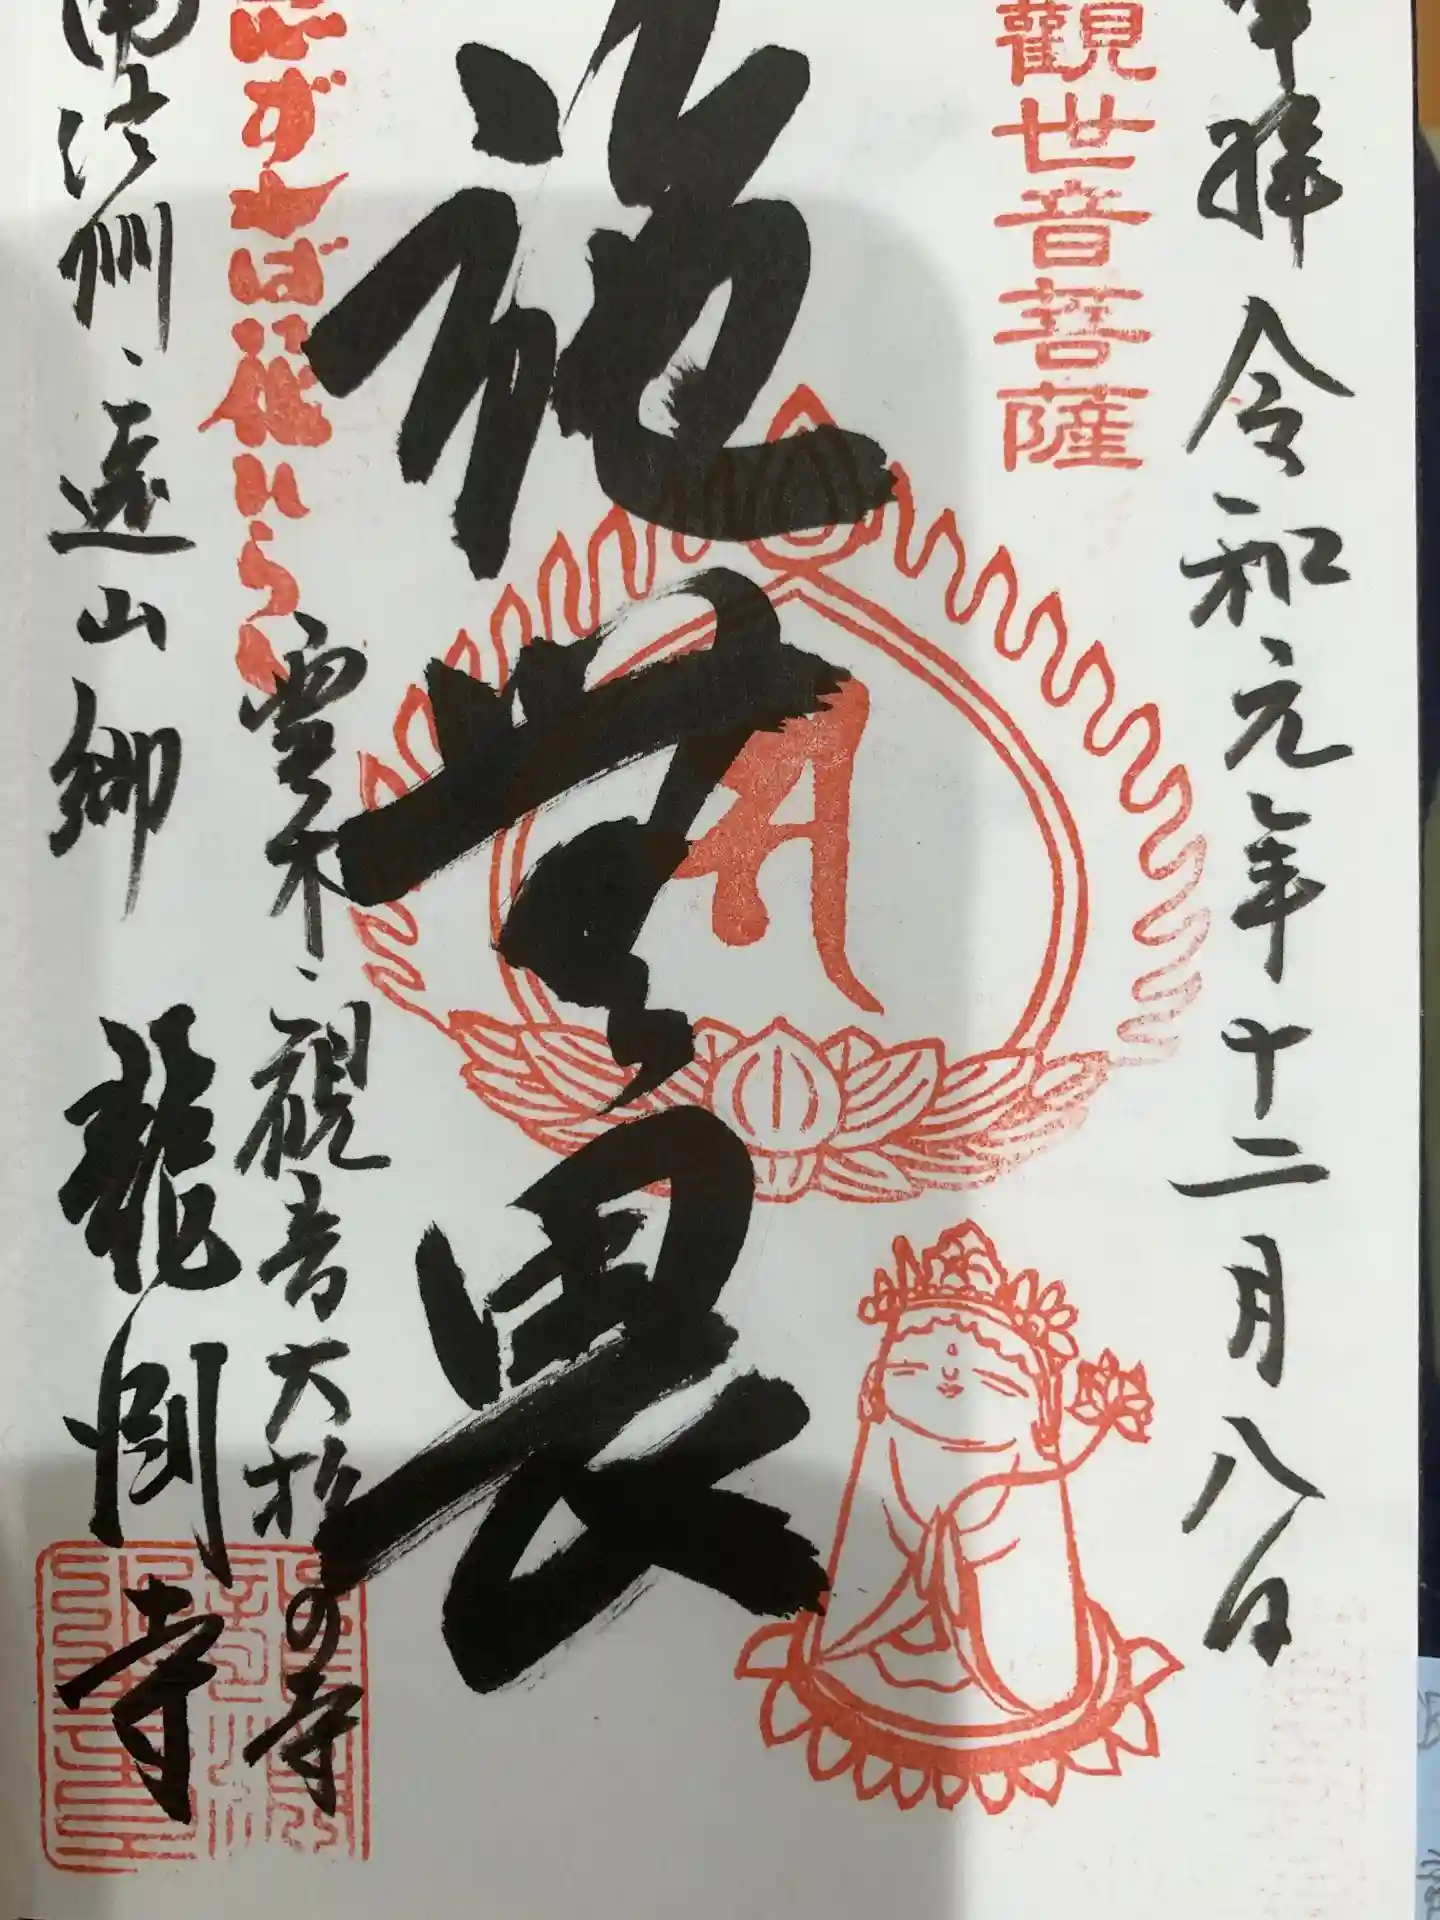 奉拝 令和元年十二月八日
觀世音菩薩
施無畏
念ずれば花ひらく
霊木・観音大杉の寺
南信州・遠山郷 龍淵寺